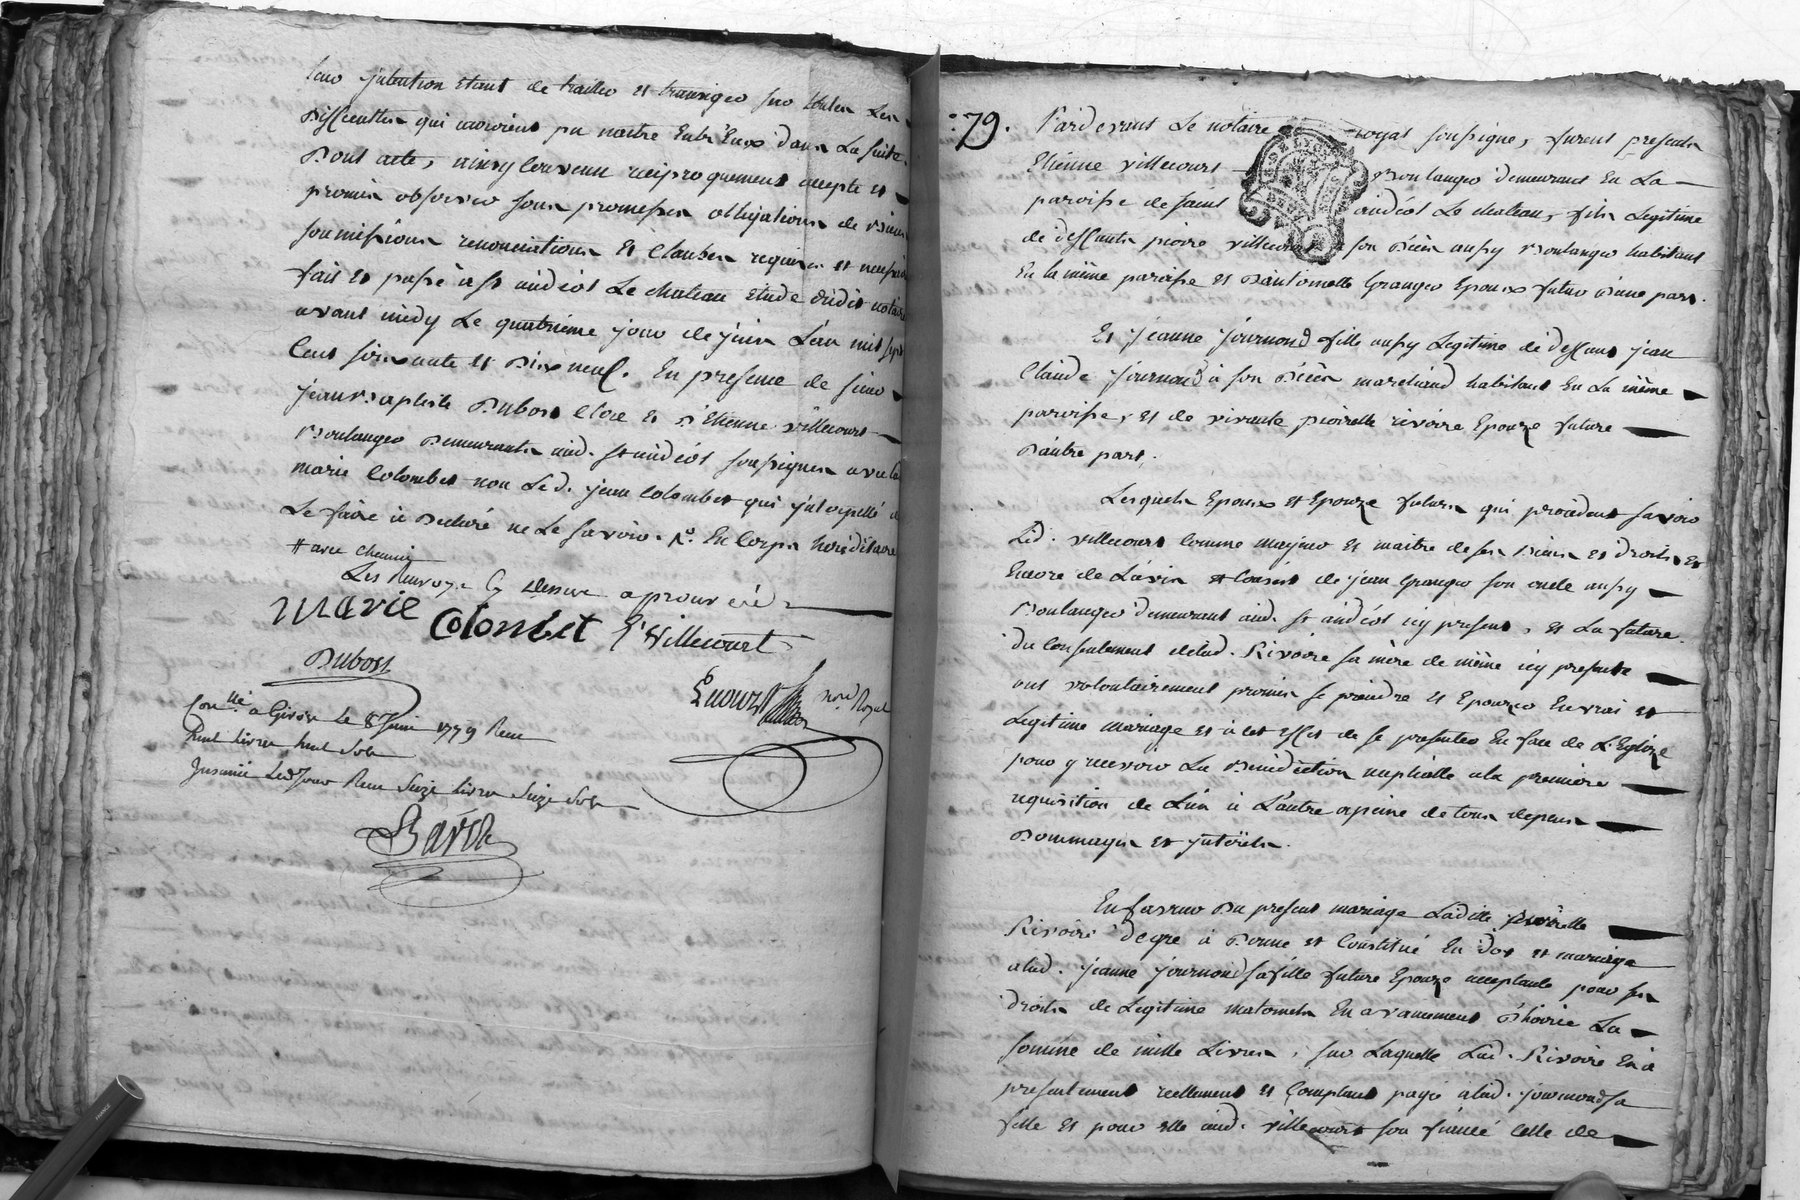 leur jntention etant de traitter et transiger sur toutes les
Difficultes qui auroient pu naitre Entr'Eux dans La suite.
Dont acte, ainsy Convenu reciproquement accepté et
promis observer sous promesses obligations de Biens
soumissions renonciations et Clauses requises et necessaires
fait et passé à st andéol Le chateau Etude dudit notaire
avant midy Le quatrieme jour de juin L'an mil sept
Cent soixante et Dix neuf. En presence de sieur
jean Baptiste Dubost Clerc et s.r Etienne villecourt
Boulanger Demeurants aud. st andéol soussignés avec lad.
marie Colombet non Led. jean Colombet qui jnterpellé de
Le faire à Declaré ne Le savoir. En Corps hereditaire
# avec chemin
Les Renvoys Cy dessus aprouvés
Marie Colombet E Villecourt
Dubost
not. Royal
Con.llé a Givors Le 8 Juin 1779 Recu
huit Livres huit Sols
Jnsinué Led Jour Recu Seize Livres Seize Sols
:79. Pardevant Le notaire royal soussigné, furent presents
Etienne villecourt Boulanger demeurant En La
paroisse de saint andéol Le chateau, fils Legitime
de deffunts pierre villecourt à son Décès aussy Boulanger habitant
En la même paroisse et D'antoinette Granger Epoux futur D'une part.
Et jeanne journoud fille aussy Legitime de deffunt jean
Claude journoud à son Décès marchand habitant En La même
paroisse, et de vivante pierrette rivoire Epouze future
D'autre part.
Lesquels Epoux et Epouze futurs qui procedent savoir
Led. villecourt Comme majeur et maitre de ses Biens et droits et
Encore de L'avis et Conseil de jean Granger son oncle aussy
Boulanger demeurant aud. st andéol icy present, et La future
du Consentement delad. Rivoire sa mère de même icy presente
ont volontairement promis se prendre et Epouzer En vrai et
Legitime mariage et à cet effet de se presenter En face de L'Eglize
pour y recevoir La Benediction nuptialle a la premiere
requisition de L'un à L'autre a peine de tous depens
Dommages et jnterets.
En faveur Du present mariage Ladite pierrette
Rivoire de gré à Donné et Constitué En dot et mariage
alad. jeanne journoud sa fille future Epouze acceptante pour ses
droits de Legitime maternels En avancement D'hoirie La
somme de mille Livres, sur Laquelle Lad. Rivoire En à
presentement reellement et Comptant payé alad. journoud sa
fille et pour elle aud. villecourt son fiancé celle de